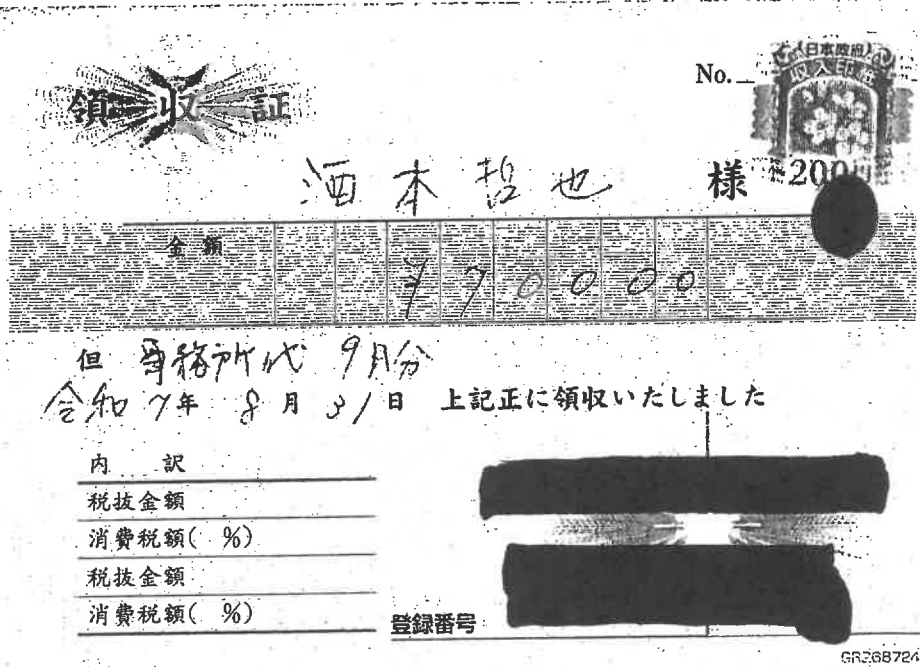 領収証
No.
日本政府
収入印紙
200円
酒本哲也 様
金額 ¥70000
但 事務所代 9月分
令和7年8月31日 上記正に領収いたしました
内 訳
税抜金額
消費税額( %)
税抜金額
消費税額( %)
登録番号